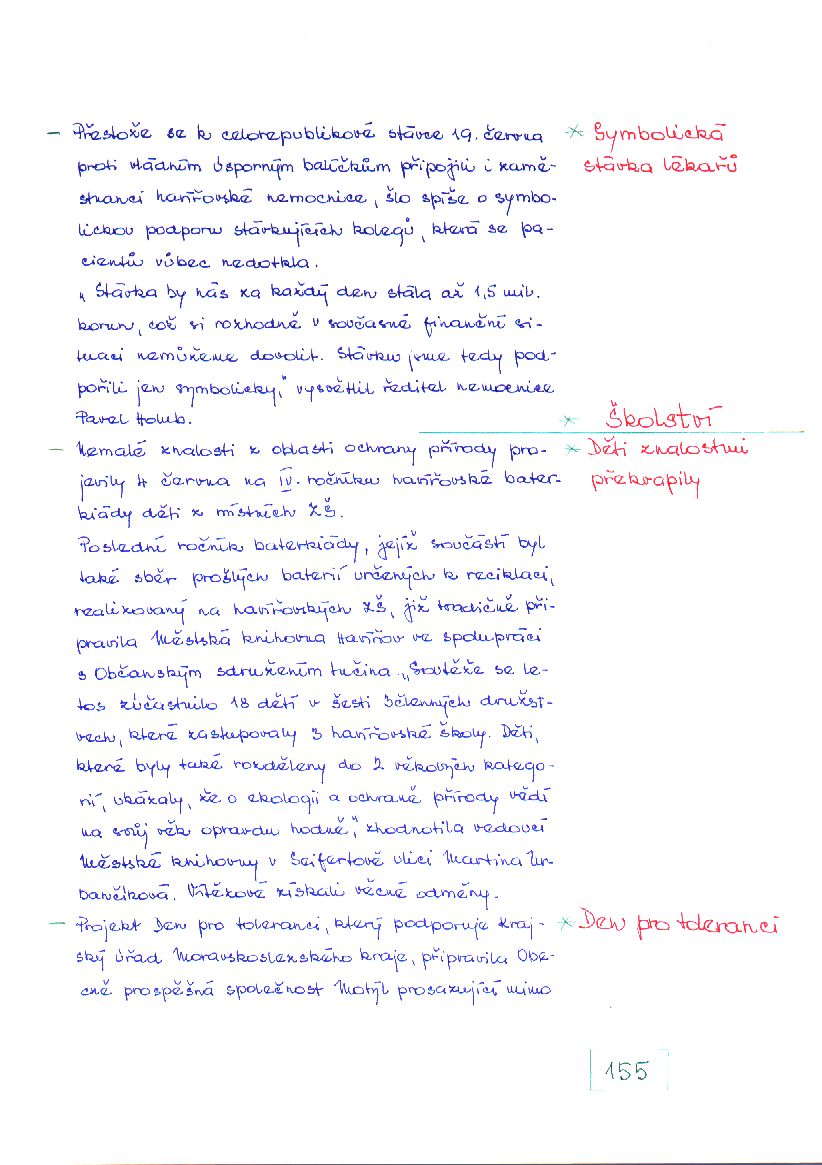 – Přestože se k celorepublikové stávce 19. června
* Symbolická
proti vládním úsporným balíčkům připojili i zamě-
stávka lékařů
stnanci havířovské nemocnice, šlo spíše o symbo-
lickou podporu stávkujících kolegů, která se pa-
cientů vůbec nedotkla.
„Stávka by nás za každý den stála až 1,5 mil.
korun, což si rozhodně v současné finanční si-
tuaci nemůžeme dovolit. Stávku jsme tedy pod-
pořili jen symbolicky," vysvětlil ředitel nemocnice
Pavel Holub.
* Školství
– Nemalé znalosti z oblasti ochrany přírody pro-
* Děti znalostmi
jevily 4 června na IV. ročníku havířovské bater-
překvapily
kiády děti z místních ZŠ.
Poslední ročník baterkiády, jejíž součástí byl
také sběr prošlých baterií určených k reciklaci,
realizovaný na havířovských ZŠ, již tradičně při-
pravila Městská knihovna Havířov ve spolupráci
s Občanským sdružením tučina. „Soutěže se le-
tos zúčastnilo 18 dětí v šesti 3členných družst-
vech, které zastupovaly 3 havířovské školy. Děti,
které byly také rozděleny do 2 věkových katego-
rií, ukázaly, že o ekologii a ochraně přírody vědí
na svůj věk opravdu hodně", zhodnotila vedoucí
Městské knihovny v Seifertově ulici Martina Ur-
bančíková. Vítězové získali věcné odměny.
– Projekt Den pro toleranci, který podporuje Kraj-
* Den pro toleranci
ský úřad Moravskoslezského kraje, připravila Obe-
cně prospěšná společnost Motýl prosazující mimo
155